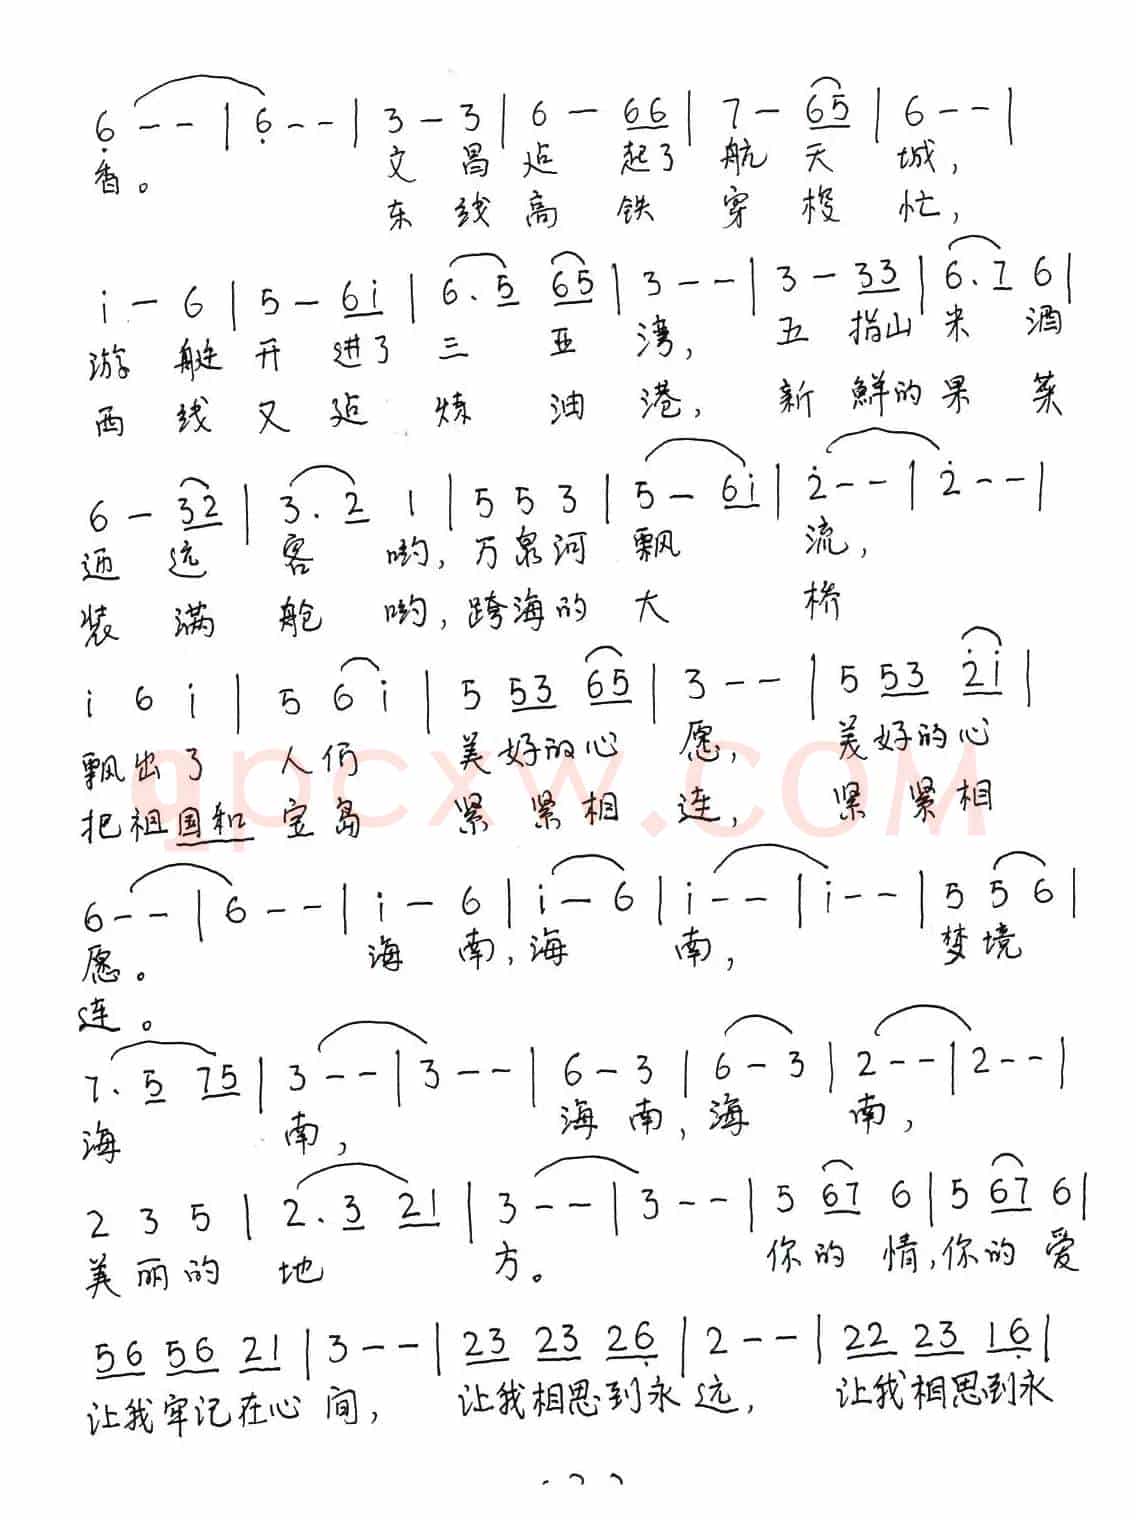 6 - - | 6 - - | 3 - 3 | 6 - 66 | 7 - 65 | 6 - - |
香。 文 昌 造 起了 航 天 城，
东 线 高 铁 穿 梭 忙，
i - 6 | 5 - 6i | 6. 5 65 | 3 - - | 3 - 33 | 6. 7 6 |
游 艇 开 进了 三 亚 湾， 五 指山 米 酒
西 线 又 造 炼 油 港， 新 鲜的 果 菜
6 - 32 | 3. 2 1 | 5 5 3 | 5 - 6i | 2 - - | 2 - - |
迎 远 客 哟，万泉河 飘 流，
装 满 舱 哟，跨海的 大 桥
i 6 i | 5 6 i | 5 53 65 | 3 - - | 5 53 2i |
飘出了 人们 美好的心 愿， 美好的心
把祖国和 宝岛 紧 紧相 连， 紧 紧相
qpcxw.COM
6 - - | 6 - - | i - 6 | i - 6 | i - - | i - - | 5 5 6 |
愿。 海 南，海 南， 梦境
连。
7. 5 75 | 3 - - | 3 - - | 6 - 3 | 6 - 3 | 2 - - | 2 - - |
海 南， 海 南，海 南，
2 3 5 | 2. 3 21 | 3 - - | 3 - - | 5 67 6 | 5 67 6 |
美丽的 地 方。 你的 情，你的 爱
56 56 21 | 3 - - | 23 23 26 | 2 - - | 22 23 16 |
让我牢记在心 间， 让我相思到永 远， 让我相思到永